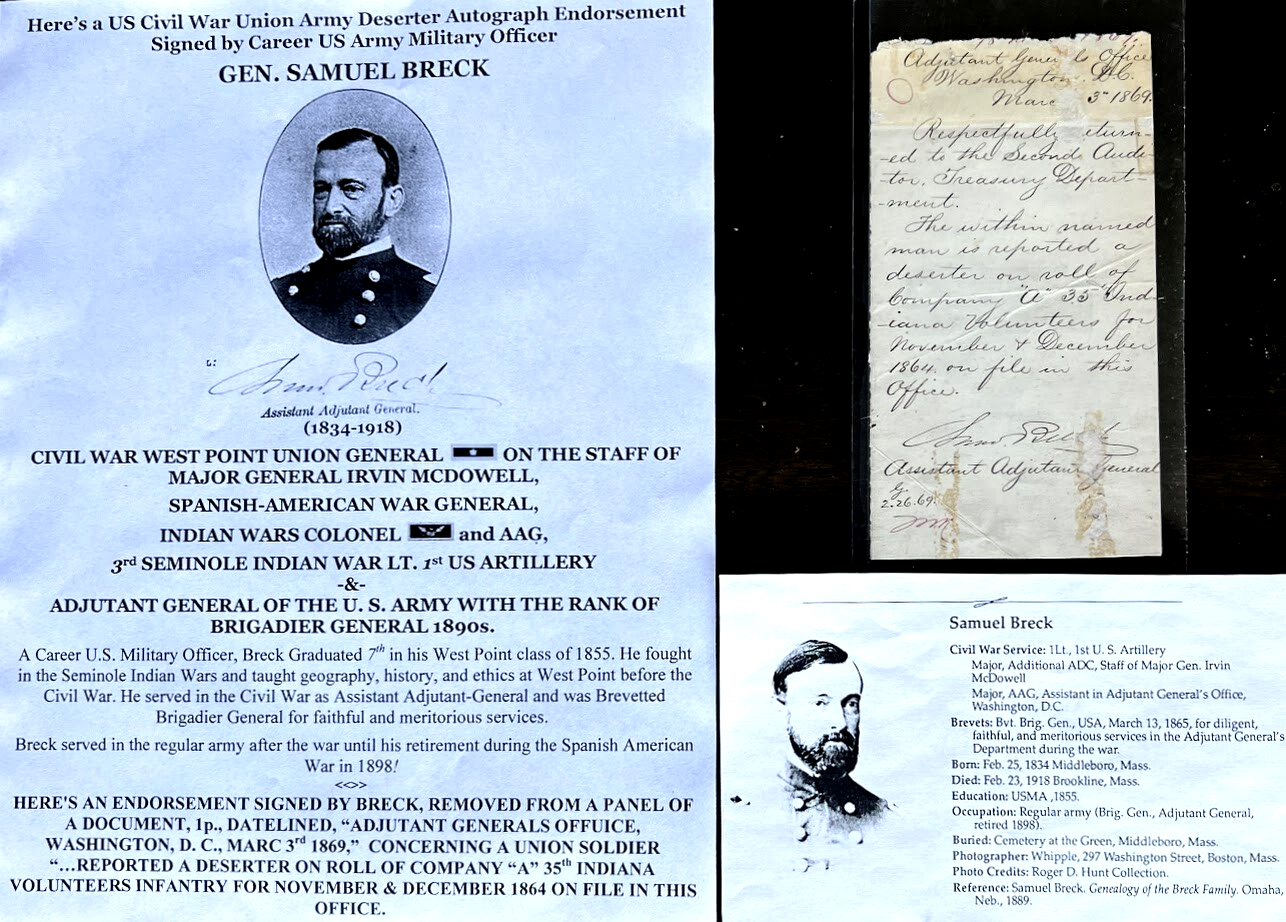 Here's a US Civil War Union Army Deserter Autograph Endorsement
Signed by Career US Army Military Officer
GEN. SAMUEL BRECK
Saml Breck
Assistant Adjutant General.
(1834-1918)
CIVIL WAR WEST POINT UNION GENERAL ON THE STAFF OF
MAJOR GENERAL IRVIN MCDOWELL,
SPANISH-AMERICAN WAR GENERAL,
INDIAN WARS COLONEL and AAG,
3rd SEMINOLE INDIAN WAR LT. 1st US ARTILLERY
-&-
ADJUTANT GENERAL OF THE U. S. ARMY WITH THE RANK OF
BRIGADIER GENERAL 1890s.
A Career U.S. Military Officer, Breck Graduated 7th in his West Point class of 1855. He fought
in the Seminole Indian Wars and taught geography, history, and ethics at West Point before the
Civil War. He served in the Civil War as Assistant Adjutant-General and was Brevetted
Brigadier General for faithful and meritorious services.
Breck served in the regular army after the war until his retirement during the Spanish American
War in 1898!
<<>>
HERE'S AN ENDORSEMENT SIGNED BY BRECK, REMOVED FROM A PANEL OF
A DOCUMENT, 1p., DATELINED, "ADJUTANT GENERALS OFFUICE,
WASHINGTON, D. C., MARC 3rd 1869," CONCERNING A UNION SOLDIER
"...REPORTED A DESERTER ON ROLL OF COMPANY "A" 35th INDIANA
VOLUNTEERS INFANTRY FOR NOVEMBER & DECEMBER 1864 ON FILE IN THIS
OFFICE.
Adjutant Gener ls Office
Washington D.C.
Marc 3" 1869.
Respectfully eturn-
-ed to the Second Audi-
-tor, Treasury Depart-
-ment.
The within named
man is reported a
deserter on roll of
Company "A" 35" Ind-
-iana Volunteers for
November & December
1864 on file in this
Office.
Saml Breck
Assistant Adjutan General
2.26.69.
Samuel Breck
Civil War Service: 1Lt., 1st U. S. Artillery
Major, Additional ADC, Staff of Major Gen. Irvin
McDowell
Major, AAG, Assistant in Adjutant General's Office,
Washington, D.C.
Brevets: Bvt. Brig. Gen., USA, March 13, 1865, for diligent,
faithful, and meritorious services in the Adjutant General's
Department during the war.
Born: Feb. 25, 1834 Middleboro, Mass.
Died: Feb. 23, 1918 Brookline, Mass.
Education: USMA ,1855.
Occupation: Regular army (Brig. Gen., Adjutant General,
retired 1898).
Buried: Cemetery at the Green, Middleboro, Mass.
Photographer: Whipple, 297 Washington Street, Boston, Mass.
Photo Credits: Roger D. Hunt Collection.
Reference: Samuel Breck. Genealogy of the Breck Family. Omaha,
Neb., 1889.